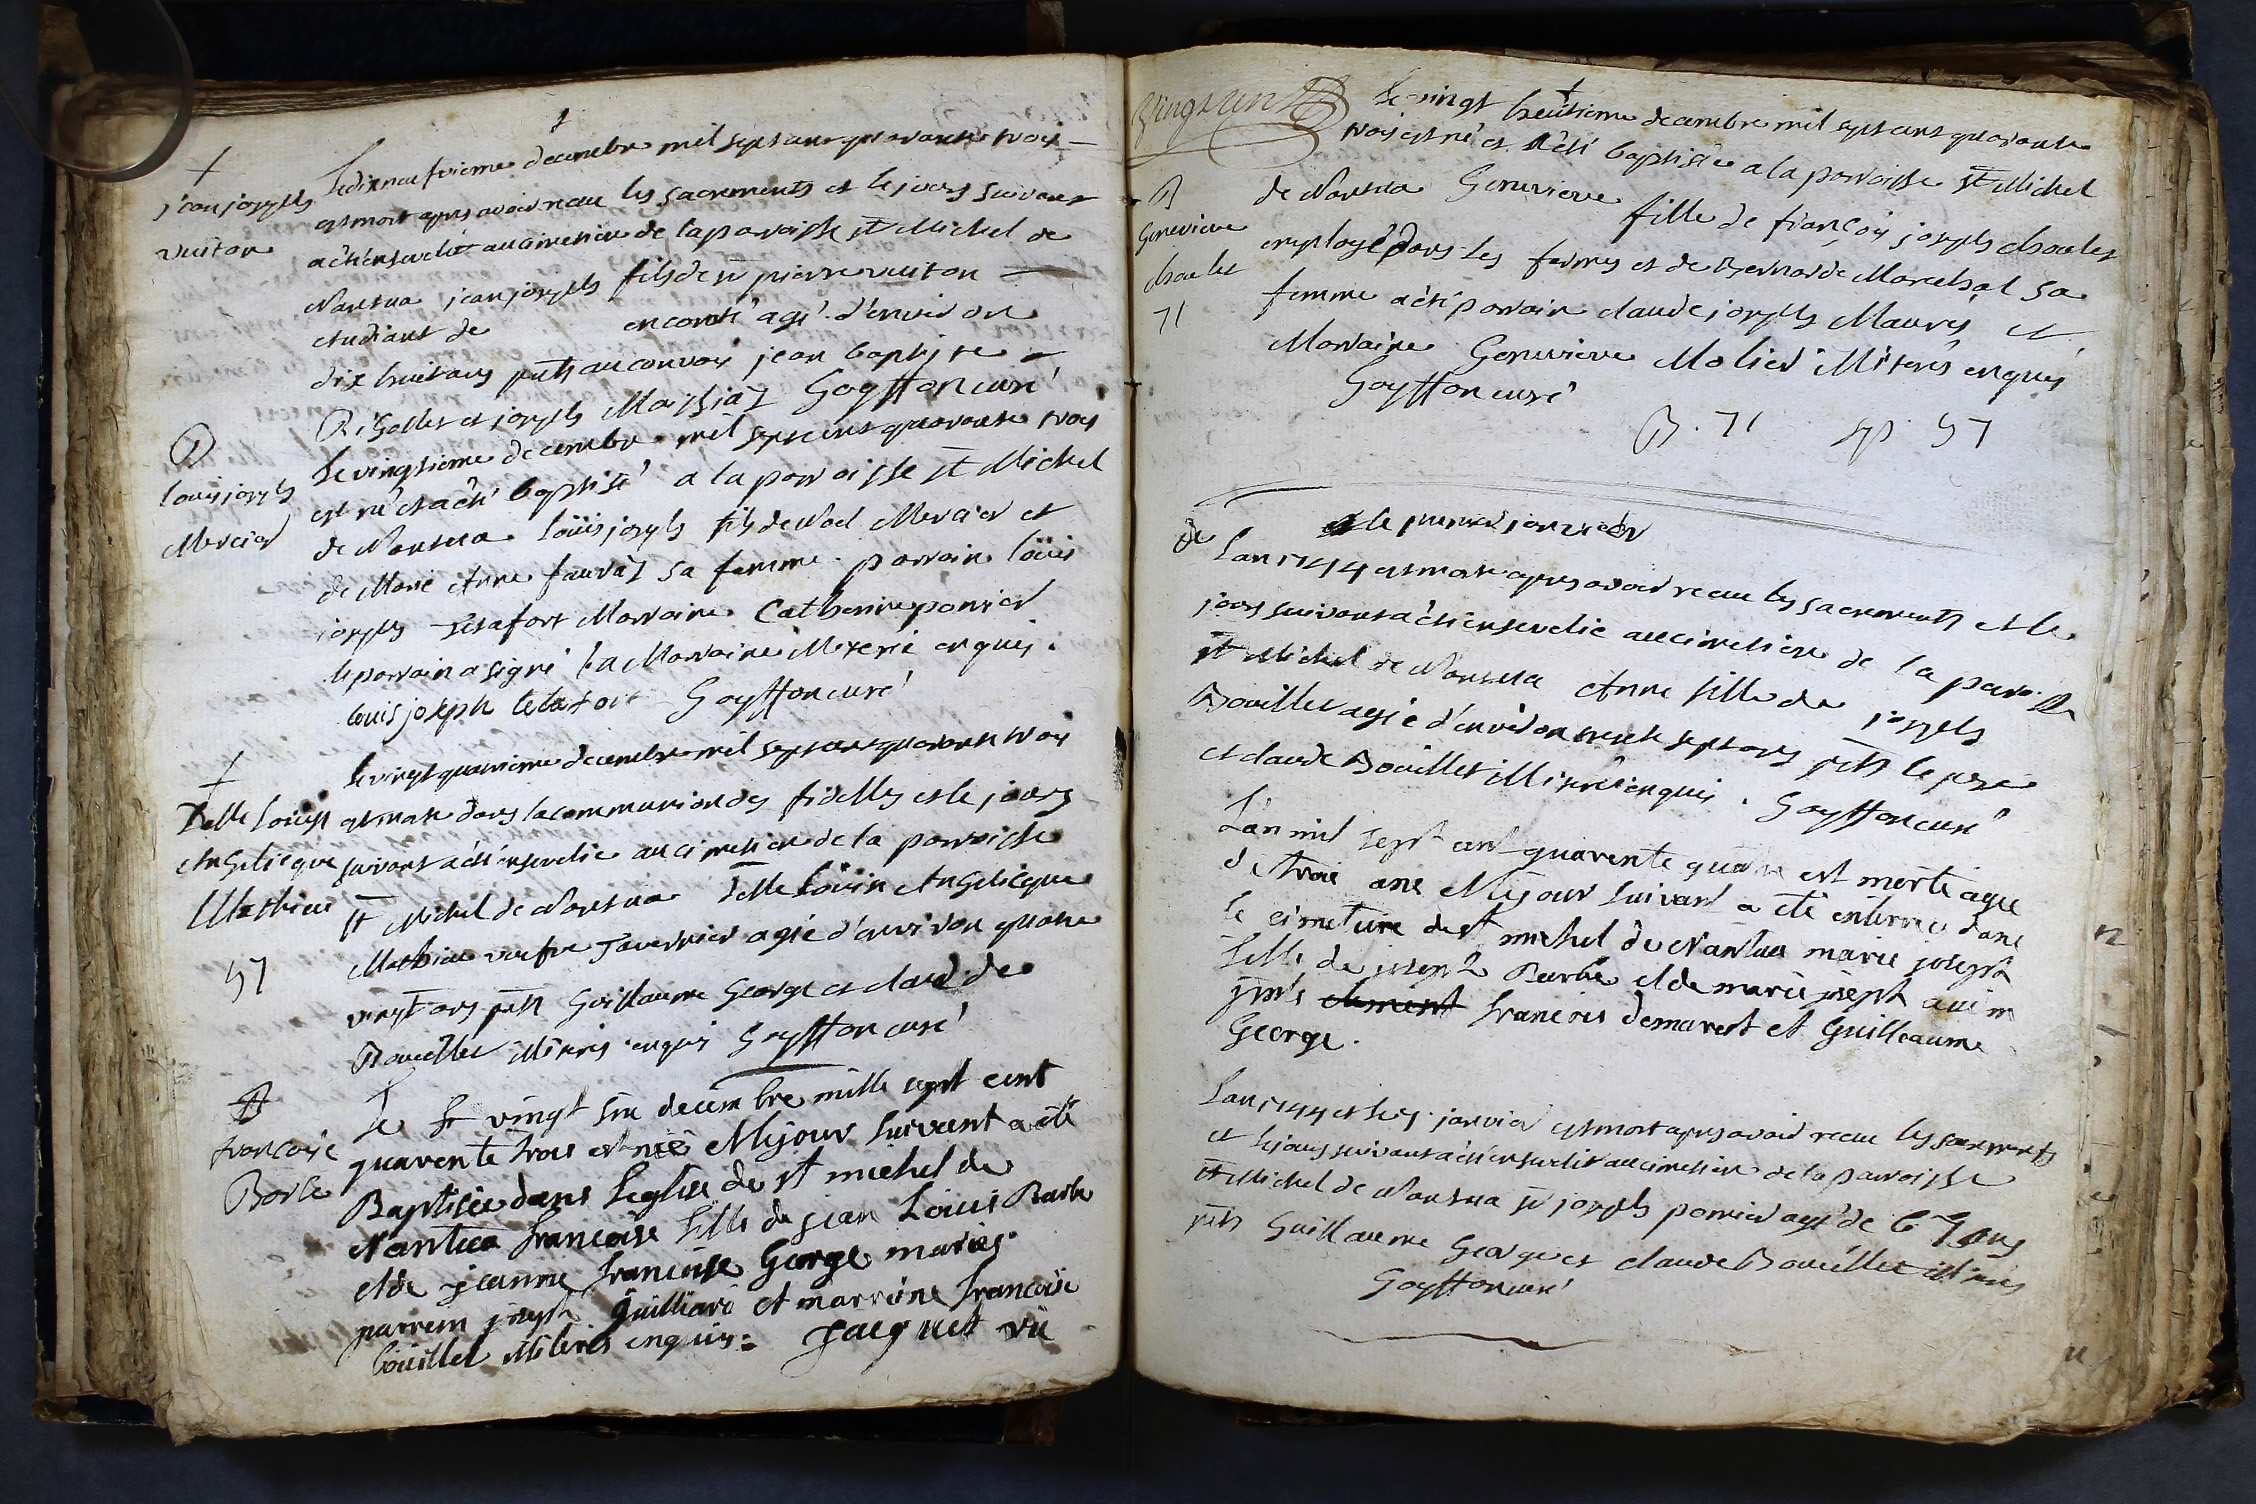 +
jean joseph
vuiton
Le dixneufvieme decembre mil sept cent quarante trois
est mort apres avoir receu les sacrements et le jours suivant
a été enseveli au cimetiere de la parroisse st Michel de
Nantua jean joseph fils de sr pierre vuiton
etudiant de en comté agé d'environ
dix huit ans pnts au convoi jean baptiste
Rigollet et joseph Maissiaz Goyffon curé
B
louis joseph
Mercier
Le vingtieme decembre mil sept cent quarante trois
est né et a été baptisé a la parroisse st Michel
de Nantua loüis joseph fils de Noel Mercier et
de Marie Anne fauraz sa femme parrain loüis
joseph Marraine Catherine perrier
le parrain a signé la Marraine enquis.
louis joseph Goyffon curé
+
Delle
Angelicque
Mathieu
57
Le vingt quatrieme decembre mil sept cent quarante trois
est morte dans la communion des fidelles et le jours
suivant a été ensevelie au cimetiere de la parroisse
st Michel de Nantua Delle Angelicque
Mathieu veufve Tavernier agée d'environ quatre
vingt ans pnts Guillaume George et claude
Bouillet enquis Goyffon curé
B
francoise
Barbe
Le vingt six decembre mille sept cent
quarente trois est née et le jour suivant a été
Baptisée dans l'eglise de st michel de
Nantua françoise fille de jean Louis Barbe
et de jeanne françoise George mariés
parrein joseph Guilliard et marreine françoise
boüillet enquis. Jacquet vic
vingt un
B
Genevieve
71
Le vingt heuitieme decembre mil sept cent quarante
trois est né et a été baptisée a la parroisse st Michel
de Nantua Genevieve fille de françois joseph
employé dans les fermes et de Bernarde Marechal sa
femme a été parrain claude joseph Mauris et
Marraine Genevieve Molier enquis
Goyffon curé
B. 71 sp. 57
le premier janvier
de
Lan 1744 est morte apres avoir receu les sacrements et le
jours suivant a été ensevelie au cimetiere de la parroisse
st Michel de Nantua Anne fille de joseph
Bouillet agée d'environ trente sept ans pnts le pere
et claude Bouillet enquis. Goyffon curé
L'an mil sept cent quarente quatre est morte agée
de trois ans et le jour suivant a été enterrée dans
le cimetiere de st michel de Nantua marie joseph
fille de joseph Barbe et de marie joseph
pnts clement françois demarest et Guilleaume
George.
Lan 1744 et le 7. janvier est mort apres avoir receu les sacrements
et le jours suivant a été enseveli au cimetiere de la parroisse
st Michel de Nantua sr joseph perrier agé de 67 ans
pnts Guillaume George et claude Bouillet
Goyffon curé